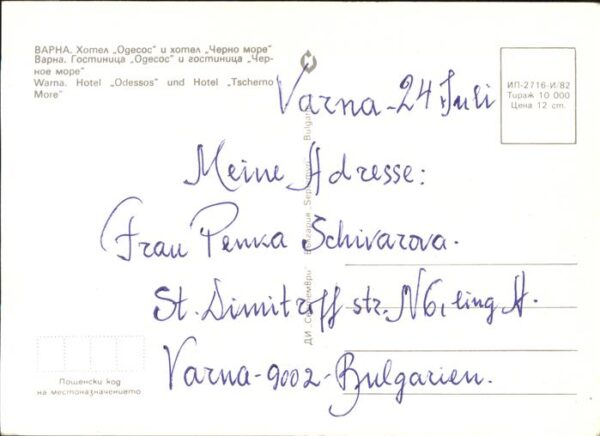 ВАРНА. Хотел „Одесос" и хотел „Черно море"
Варна. Гостиница „Одесос" и гостиница „Чер-
ное море"
Warna. Hotel „Odessos" und Hotel „Tscherno
More"
ИП-2716-И/82
Тираж 10 000
Цена 12 ст.
Varna - 24 Juli
Meine Adresse:
Frau Penka Schivarova.
St. Dimitroff str. N6, ling A.
Varna - 9002 - Bulgarien.
ДИ „Септември" България „Septemvri" Bulgaria
Пощенски код
на местоназначението